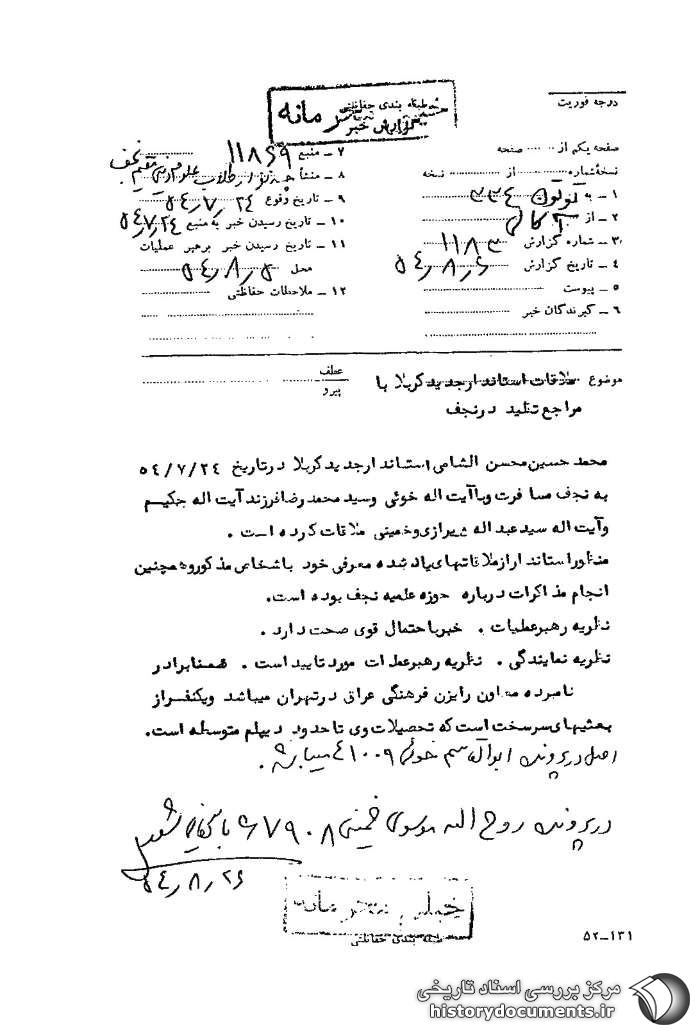 درجه فوریت
طبقه بندی حفاظتی
گزارش خبر
صفحه یکم از صفحه
نسخهٔ شماره از نسخه
۱ ـ به ۳۳۴
۲ ـ از
۳ ـ شماره گزارش ۱۱۸۳
۴ ـ تاریخ گزارش ۵۴٫۸٫۶
۵ ـ پیوست
۶ ـ گیرندگان خبر
۷ ـ منبع ۱۱۸۶۹
۸ ـ منشأ چند نفر از طلاب علوم دینی مقیم نجف
۹ ـ تاریخ وقوع ۵۴٫۷٫۲۴
۱۰ ـ تاریخ رسیدن خبر به منبع ۵۴٫۷٫۲۴
۱۱ ـ تاریخ رسیدن خبر برهبر عملیات
محل ۵۴٫۸٫۵
۱۲ ـ ملاحظات حفاظتی
موضوع ملاقات استاندار جدید کربلا با
مراجع تقلید در نجف
عطف
پیرو
محمد حسین محسن الشامی استاندار جدید کربلا در تاریخ ۵۴/۷/۲۴
به نجف مسافرت و با آیت اله خوئی و سید محمد رضا فرزند آیت اله حکیم
و آیت اله سید عبد اله شیرازی و خمینی ملاقات کرده است .
منظور استاندار از ملاقاتهای یاد شده معرفی خود با شخاص مذکور و همچنین
انجام مذاکرات درباره حوزه علمیه نجف بوده است.
نظریه رهبر عملیات . خبر با حتمال قوی صحت دارد .
نظریه نمایندگی . نظریه رهبر عملیات مورد تایید است . ضمنا برادر
نامبرده معاون رایزن فرهنگی عراق در تهران میباشد و یکنفر از
بعثیهای سرسخت است که تحصیلات وی تا حدود دیپلم متوسطه است.
اصل در پرونده ابوالقاسم خوئی ۴۱۰۰۹ میباشد .
در پرونده روح اله موسوی خمینی ۶۷۹۰۸ بایگانی شود
۵۴٫۸٫۲۶
خیلی محرمانه
طبقه بندی حفاظتی
۵۲ـ۱۳۱
مرکز بررسی اسناد تاریخی
historydocuments.ir